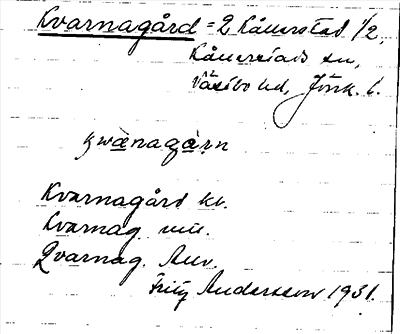 Kvarnagård = 2 Kållerstad 1/2,
Kållerstads sn,
Västbo hd, Jönk. l.
kwànagàrn
Kvarnagård kb.
Kvarnag. mu.
Qvarnag. Anv.
Fritz Andersson 1931.